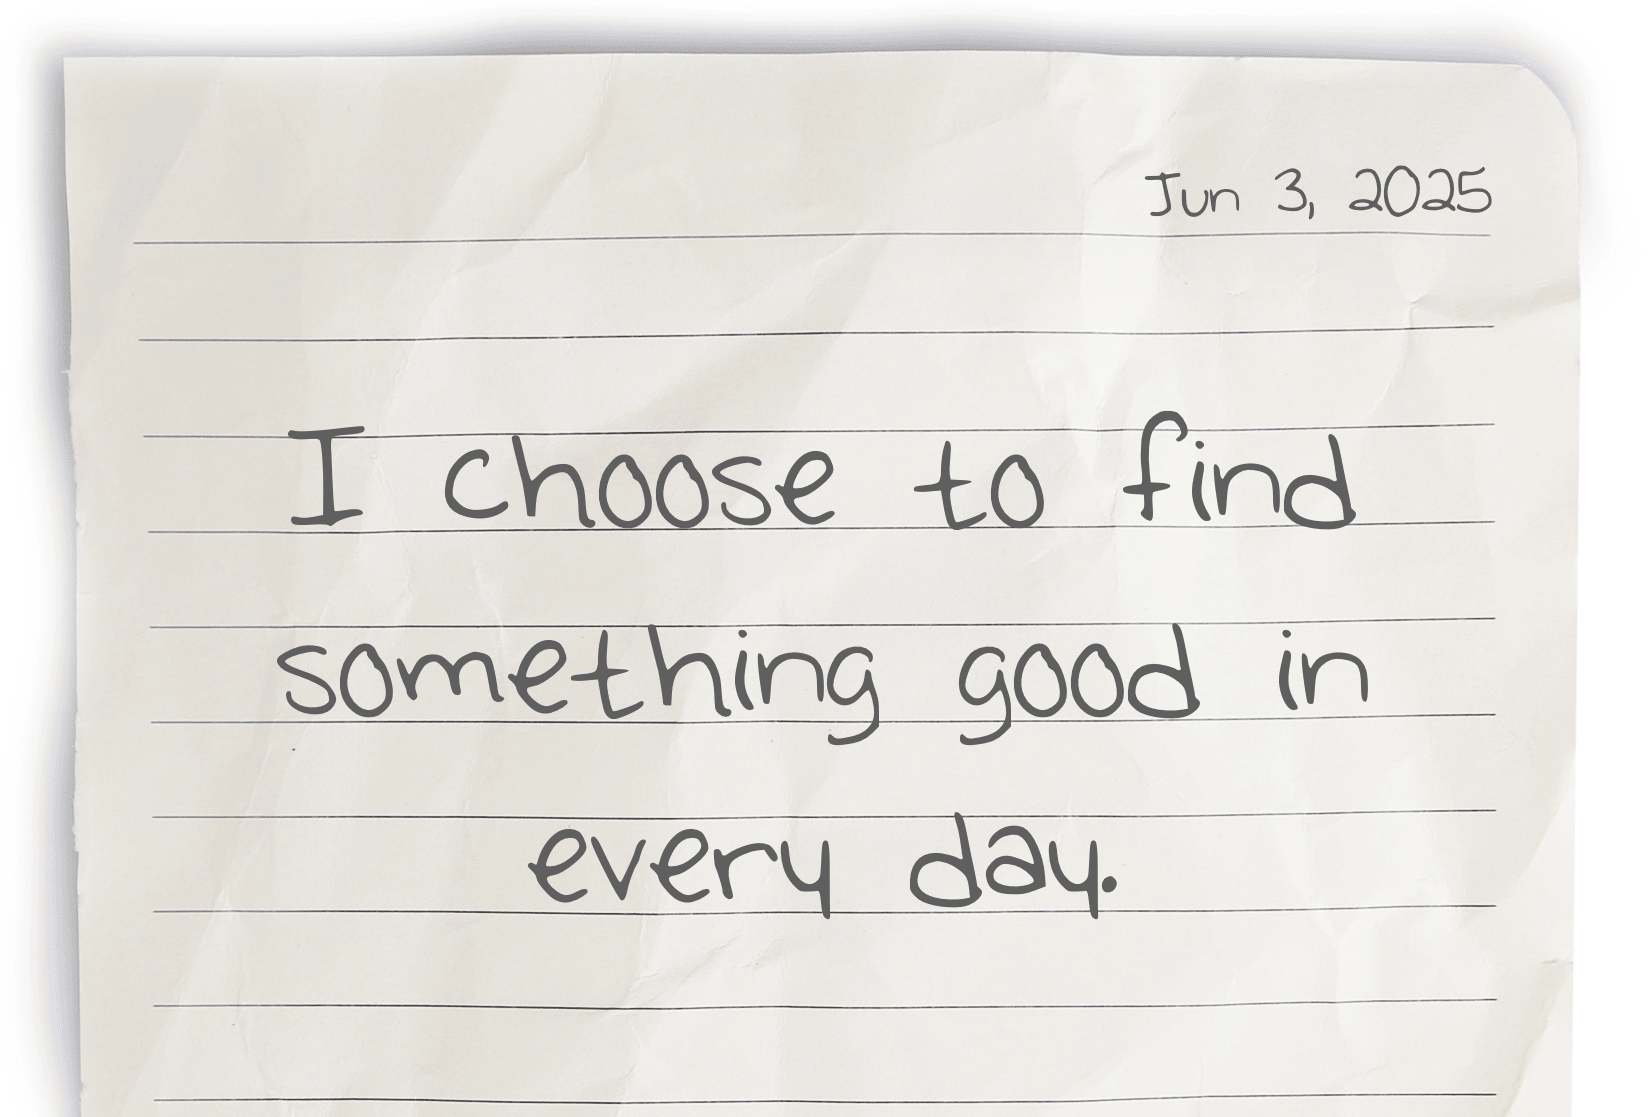 Jun 3, 2025
I choose to find
something good in
every day.